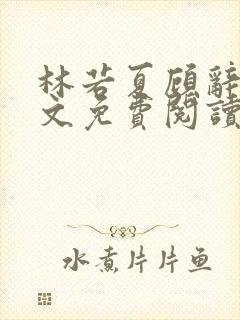 林若夏顾辞
文免費閱讀
水煮片片鱼